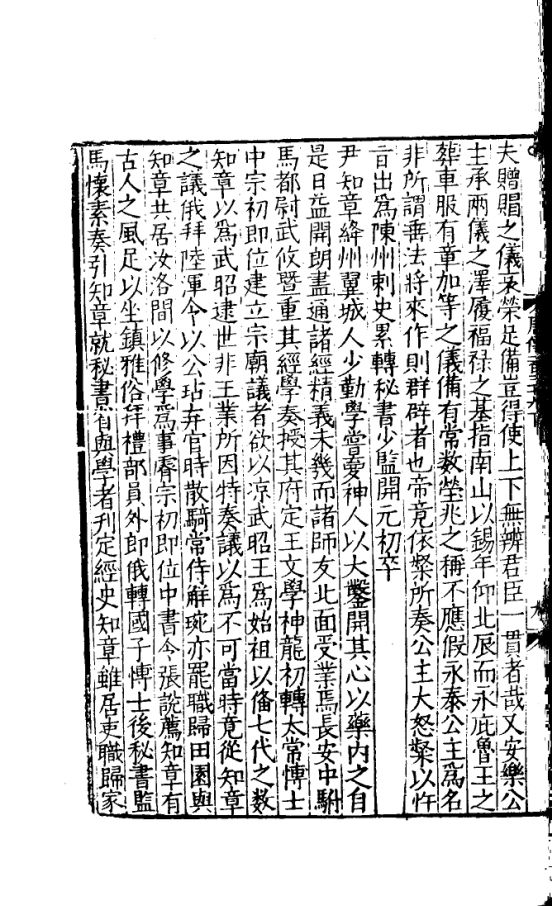 夫贈賵之儀哀榮足備豈得使上下無辨君臣一貫者哉又安樂公
主承兩儀之澤履福祿之基指南山以錫年仰北辰而永庇魯王之
葬車服有章加等之儀備有常數塋兆之稱不應假永泰公主爲名
非所謂垂法將來作則群辟者也帝竟依粲所奏公主大怒粲以忤
旨出爲陳州刺史累轉秘書少監開元初卒
尹知章絳州翼城人少勤學嘗夢神人以大鑿開其心以藥內之自
是日益開朗盡通諸經精義未幾而諸師友北面受業焉長安中駙
馬都尉武攸暨重其經學奏授其府定王文學神龍初轉太常博士
中宗初即位建立宗廟議者欲以凉武昭王爲始祖以俻七代之數
知章以爲武昭遠世非王業所因特奏議以爲不可當時竟從知章
之議俄拜陸渾令以公玷弃官時散騎常侍解琬亦罷職歸田園與
知章共居汝洛間以修學爲事睿宗初即位中書令張說薦知章有
古人之風足以坐鎮雅俗拜禮部員外郎俄轉國子博士後秘書監
馬懷素奏引知章就秘書省與學者刊定經史知章雖居吏職歸家